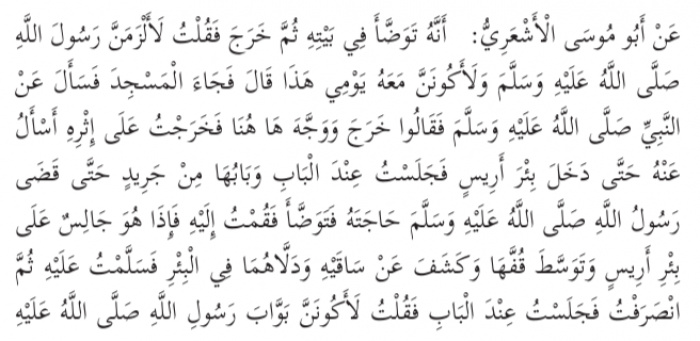 عَنْ أَبُو مُوسَى الْأَشْعَرِيُّ: أَنَّهُ تَوَضَّأَ فِي بَيْتِهِ ثُمَّ خَرَجَ فَقُلْتُ لَأَلْزَمَنَّ رَسُولَ اللَّهِ
صَلَّى اللَّهُ عَلَيْهِ وَسَلَّمَ وَلَأَكُونَنَّ مَعَهُ يَوْمِي هَذَا قَالَ فَجَاءَ الْمَسْجِدَ فَسَأَلَ عَنْ
النَّبِيِّ صَلَّى اللَّهُ عَلَيْهِ وَسَلَّمَ فَقَالُوا خَرَجَ وَوَجَّهَ هَا هُنَا فَخَرَجْتُ عَلَى إِثْرِهِ أَسْأَلُ
عَنْهُ حَتَّى دَخَلَ بِئْرَ أَرِيسٍ فَجَلَسْتُ عِنْدَ الْبَابِ وَبَابُهَا مِنْ جَرِيدٍ حَتَّى قَضَى
رَسُولُ اللَّهِ صَلَّى اللَّهُ عَلَيْهِ وَسَلَّمَ حَاجَتَهُ فَتَوَضَّأَ فَقُمْتُ إِلَيْهِ فَإِذَا هُوَ جَالِسٌ عَلَى
بِئْرِ أَرِيسٍ وَتَوَسَّطَ قُفَّهَا وَكَشَفَ عَنْ سَاقَيْهِ وَدَلَّاهُمَا فِي الْبِئْرِ فَسَلَّمْتُ عَلَيْهِ ثُمَّ
انْصَرَفْتُ فَجَلَسْتُ عِنْدَ الْبَابِ فَقُلْتُ لَأَكُونَنَّ بَوَّابَ رَسُولِ اللَّهِ صَلَّى اللَّهُ عَلَيْهِ